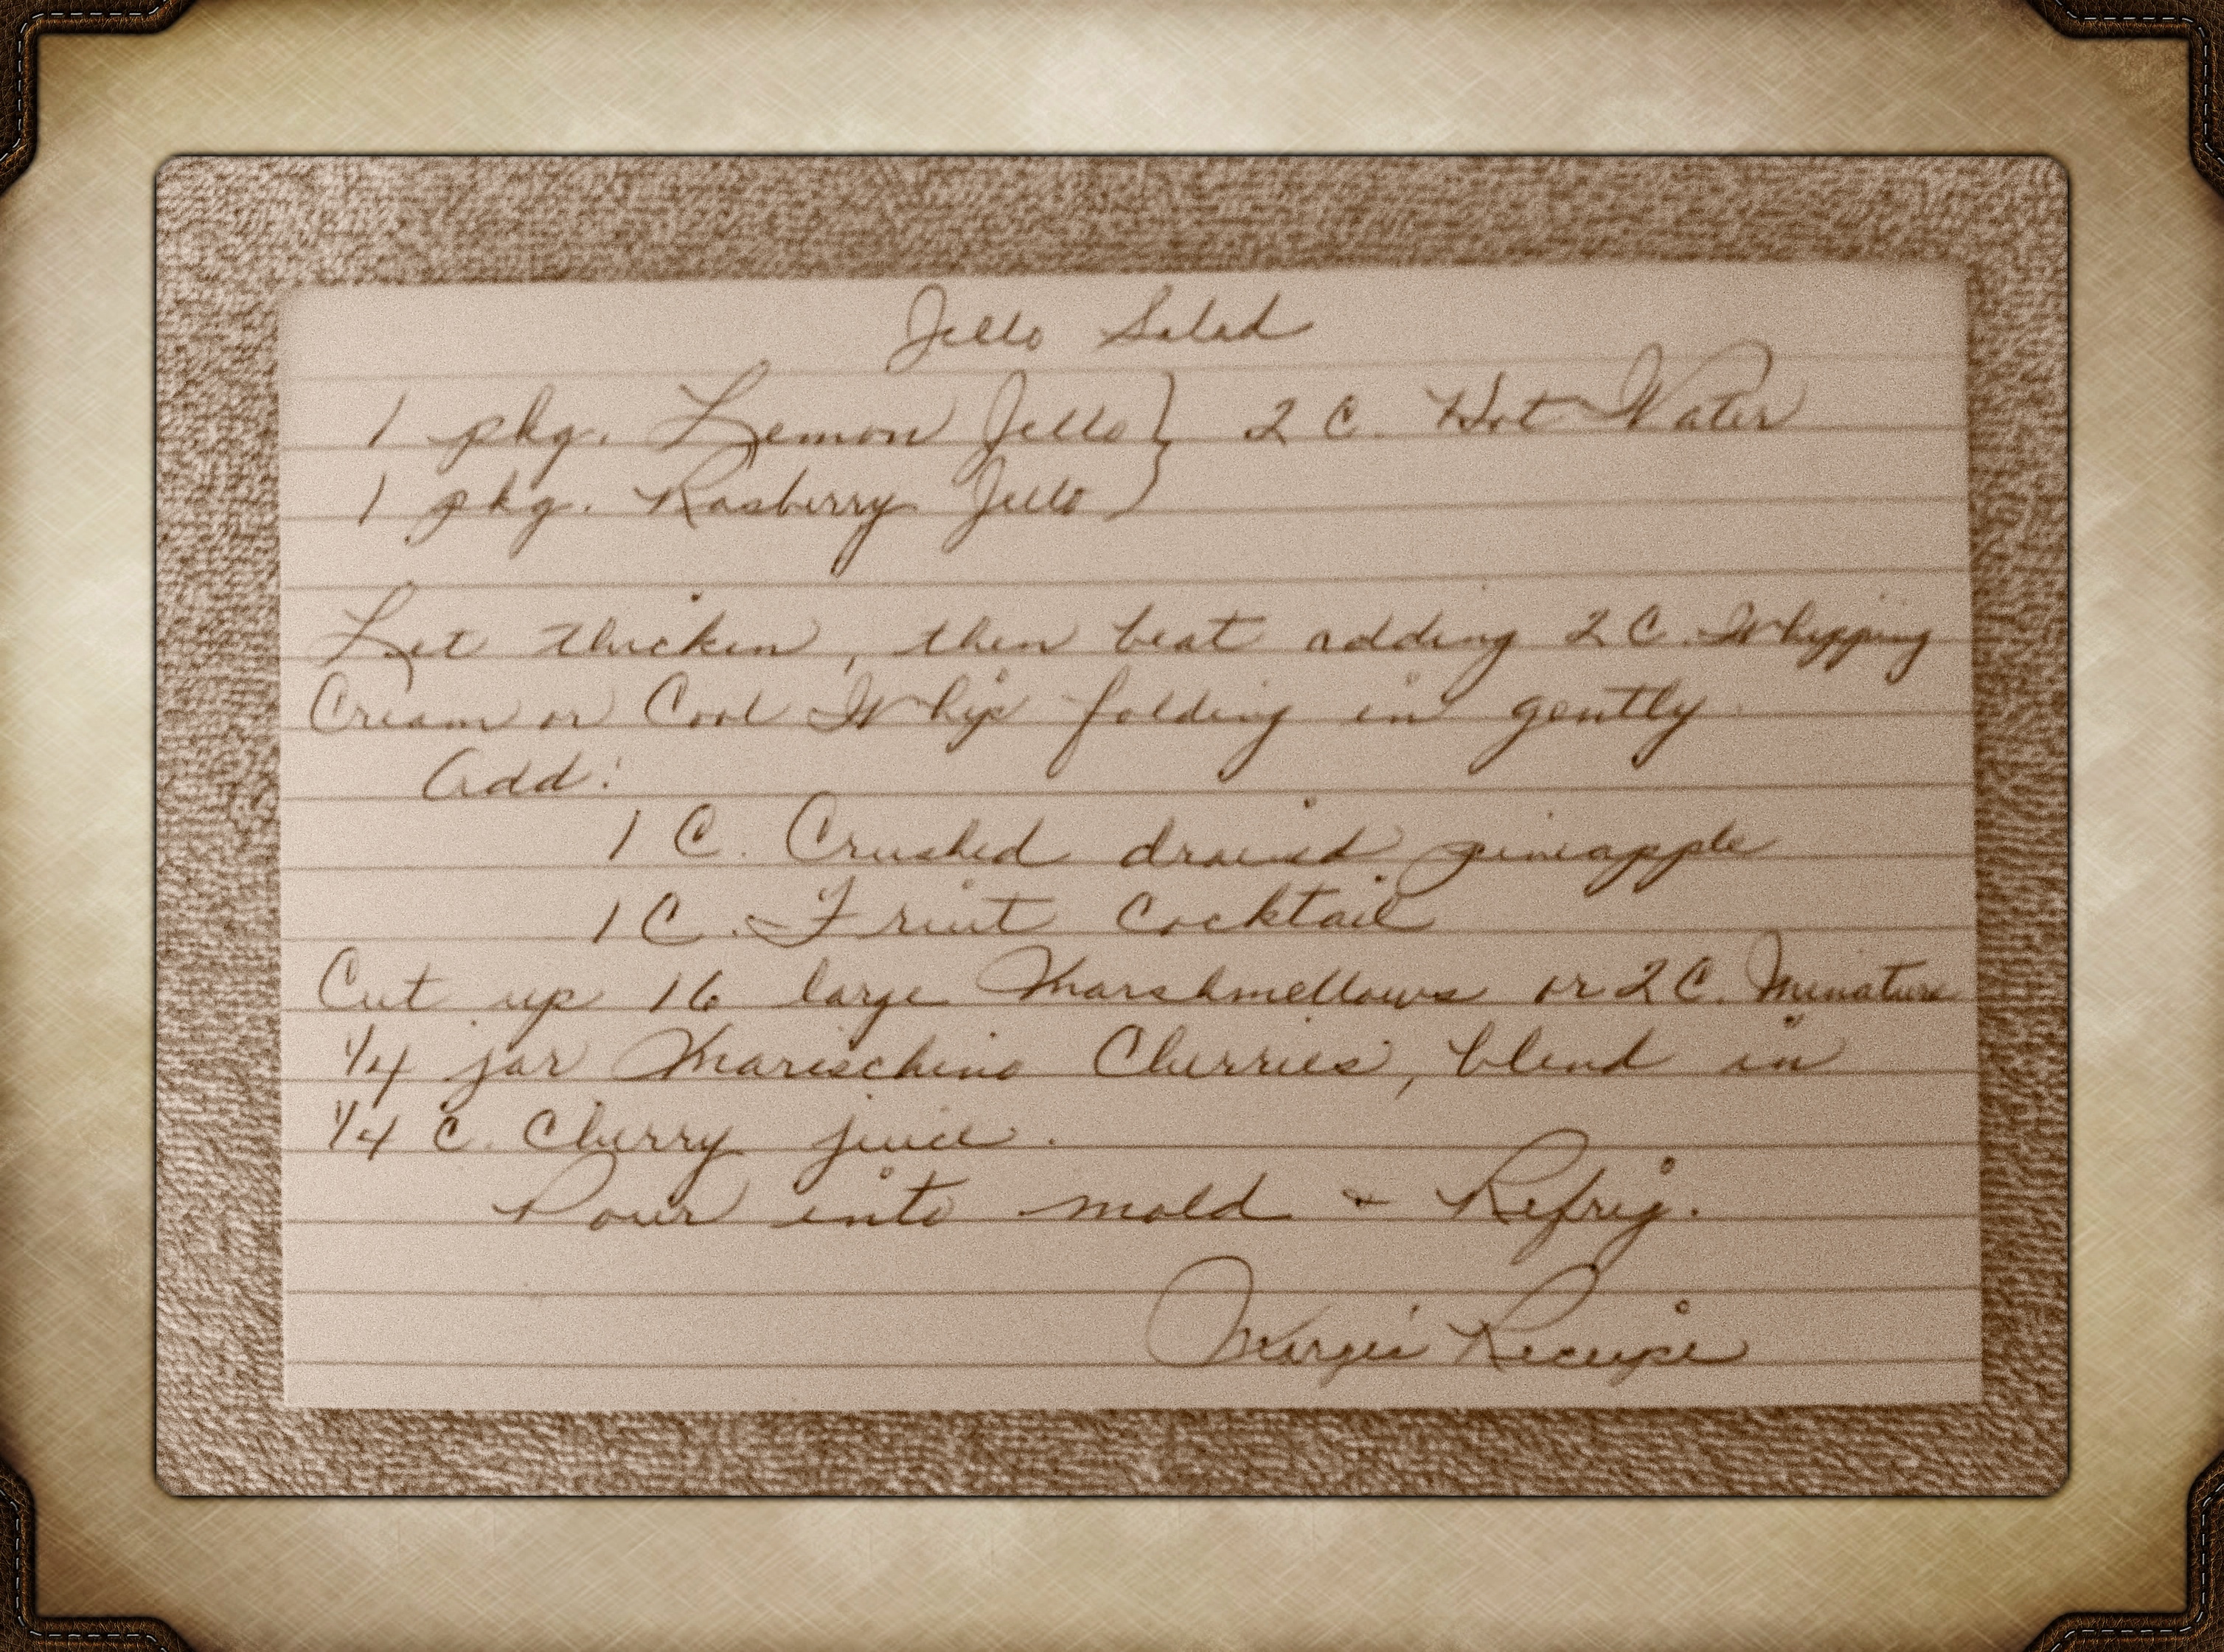 Jello Salad
1 pkg. Lemon Jello } 2 C. Hot Water
1 pkg. Rasberry Jello
Let thicken, then beat adding 2 C. Whipping
Cream or Cool Whip folding in gently
Add:
1 C. Crushed drained pineapple
1 C. Fruit Cocktail
Cut up 16 large Marshmellows or 2 C. Minature
1/4 jar Marischino Cherries, blend in
1/4 C. Cherry juice.
Pour into mold & Refrig.
Margie's Receipe